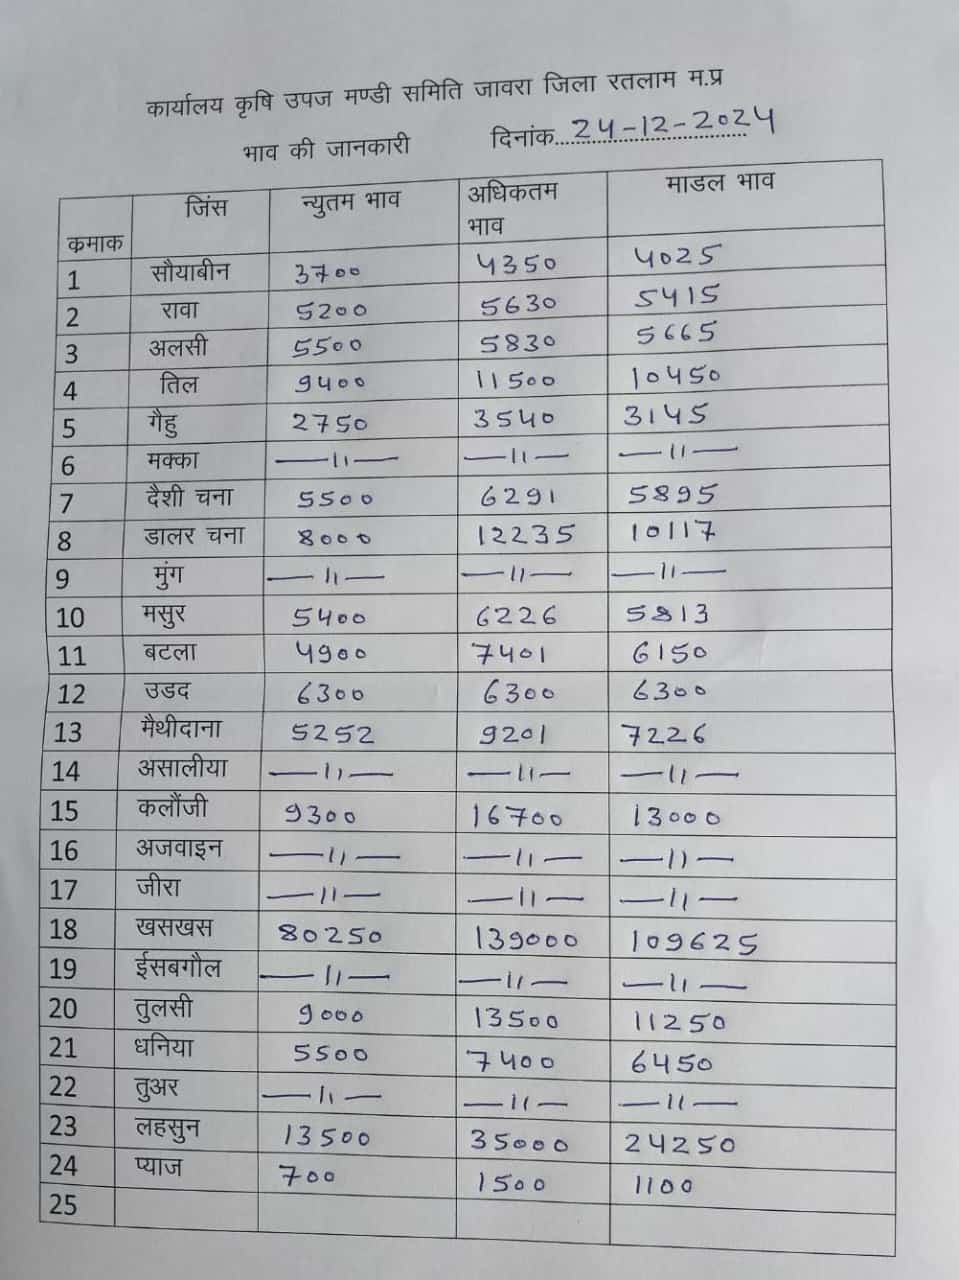 कार्यालय कृषि उपज मण्डी समिति जावरा जिला रतलाम म.प्र
भाव की जानकारी दिनांक...24-12-2024
कमाक जिंस न्युतम भाव अधिकतम भाव माडल भाव
1 सौयाबीन 3700 4350 4025
2 रावा 5200 5630 5415
3 अलसी 5500 5830 5665
4 तिल 9400 11500 10450
5 गैहु 2750 3540 3145
6 मक्का —11— —11— —11—
7 दैशी चना 5500 6291 5895
8 डालर चना 8000 12235 10117
9 मुंग —11— —11— —11—
10 मसुर 5400 6226 5813
11 बटला 4900 7401 6150
12 उडद 6300 6300 6300
13 मैथीदाना 5252 9201 7226
14 असालीया —11— —11— —11—
15 कलौंजी 9300 16700 13000
16 अजवाइन —11— —11— —11—
17 जीरा —11— —11— —11—
18 खसखस 80250 139000 109625
19 ईसबगौल —11— —11— —11—
20 तुलसी 9000 13500 11250
21 धनिया 5500 7400 6450
22 तुअर —11— —11— —11—
23 लहसुन 13500 35000 24250
24 प्याज 700 1500 1100
25